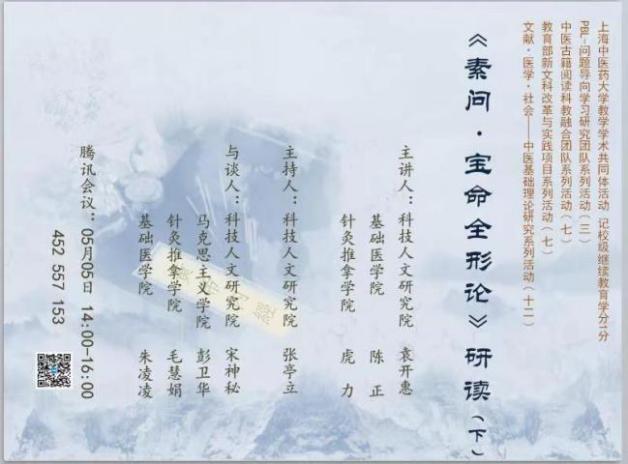 上海中医药大学教学学术共同体活动 记校级继续教育学分1分
PBL-问题导向学习研究团队系列活动（三）
中医古籍阅读科教融合团队系列活动（七）
教育部新文科改革与实践项目系列活动（七）
文献·医学·社会——中医基础理论研究系列活动（十二）
《素问·宝命全形论》研读（下）
主讲人：科技人文研究院 袁开惠
基础医学院 陈 正
针灸推拿学院 虎 力
主持人：科技人文研究院 张亭立
与谈人：科技人文研究院 宋神秘
马克思主义学院 彭卫华
针灸推拿学院 毛慧娟
基础医学院 朱凌凌
腾讯会议：05月05日 14:00-16:00
452 557 153